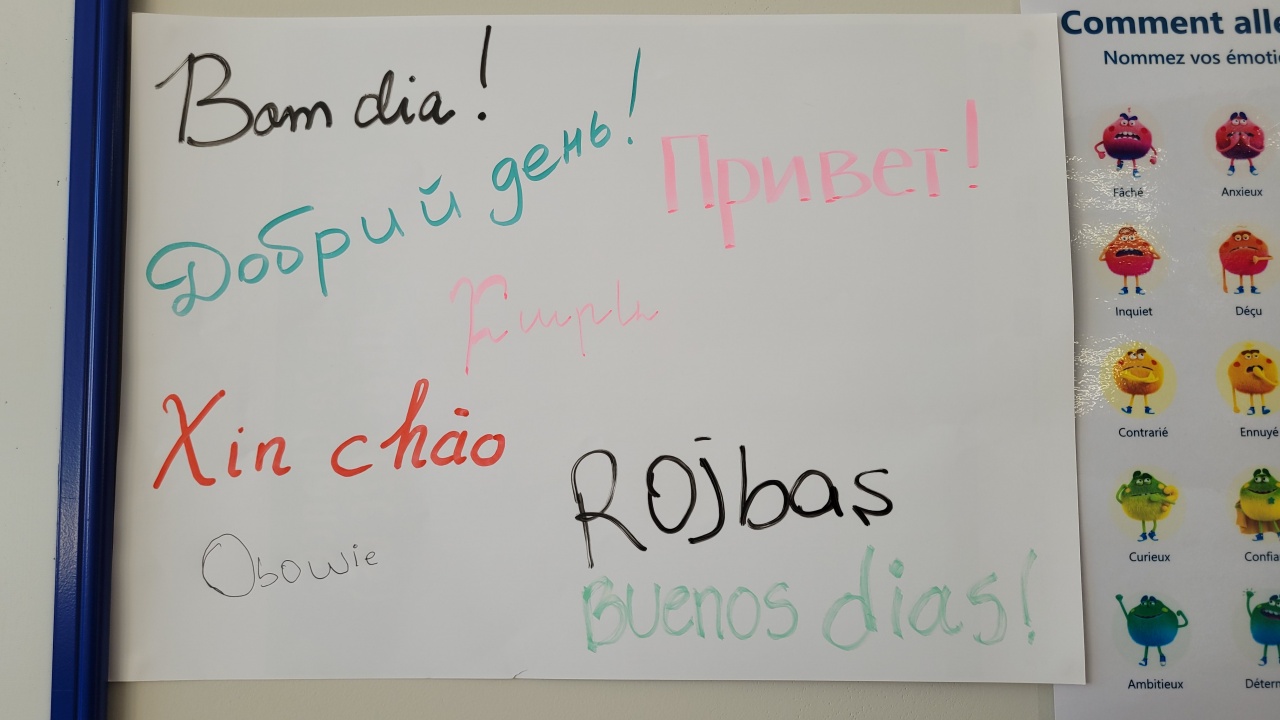 Bom dia !
Добрий день!
Привет!
Xin chào
Rojbaş
Obowie
Buenos dias!
Comment alle
Nommez vos émoti
Fâché
Anxieux
Inquiet
Déçu
Contrarié
Ennuyé
Curieux
Confia
Ambitieux
Déterm